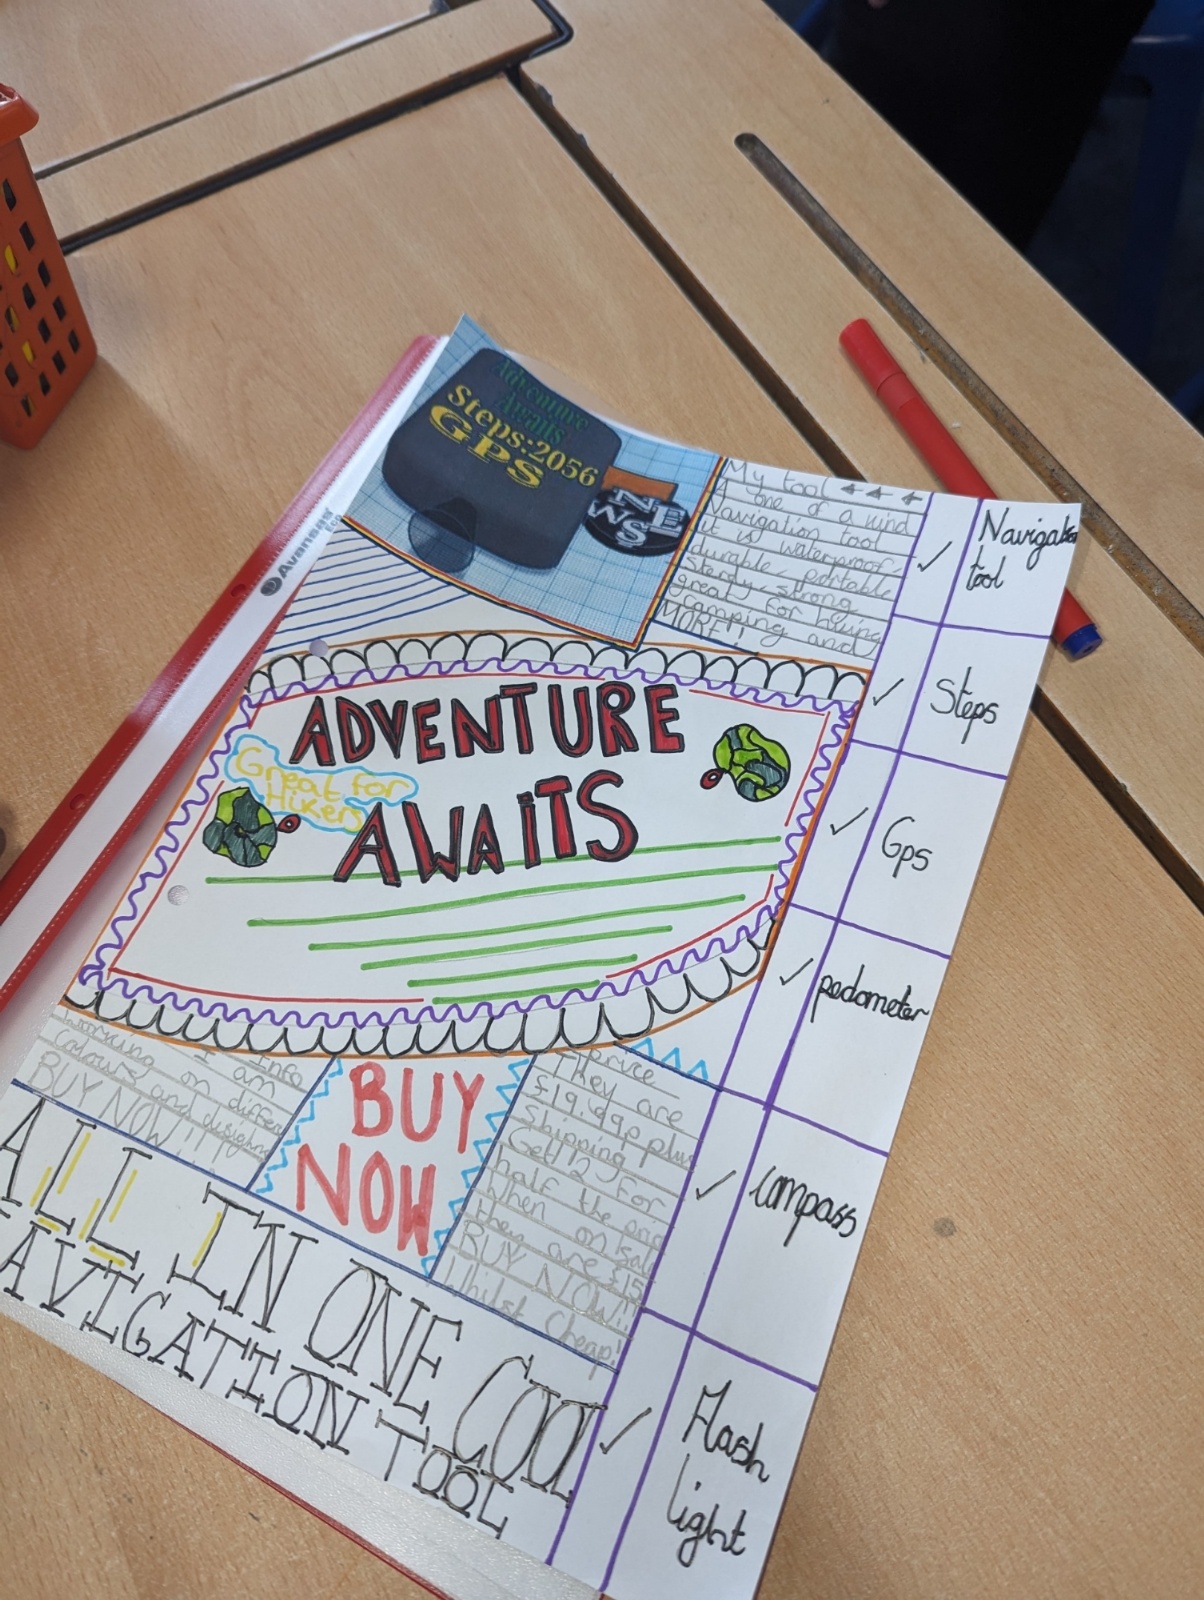 Avansas
Adventure
Awaits
Steps:2056
GPS
NE
WS
My tool
A one of a kind
Navigation tool
it is waterproof
durable, portable
sterdy strong
great for hiking
camping and
MORE!!
ADVENTURE
AWAITS
Great for
Hikers
Navigation
tool
Steps
Gps
pedometer
compass
Flash
light
Info
I am
working on
Colours and
BUY NOW!!
BUY
NOW
price
They are
£19.99p plus
shipping!
Get 12 for
half the
when on sale
they are £15
BUY NOW!!
Whilst cheap!
ALL IN ONE COOL
AVIGATION TOOL